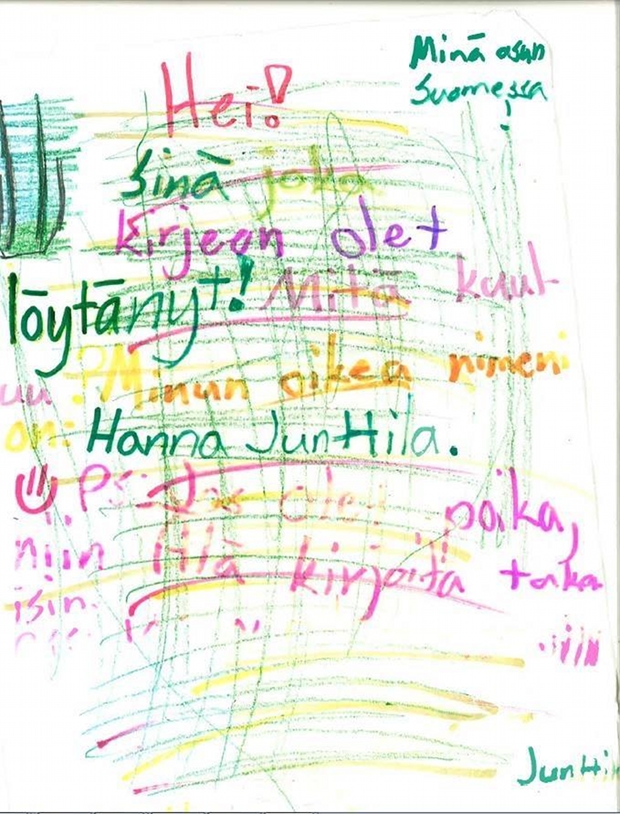 Minä asun
Suomessa
!
Hei!
Sinä joka
kirjeen olet
löytänyt! Mitä kuul-
uu? Minun oikea nimeni
on: Hanna Junttila.
Ps: Jos olet poika,
niin älä kirjoita taka
isin.
Juntti